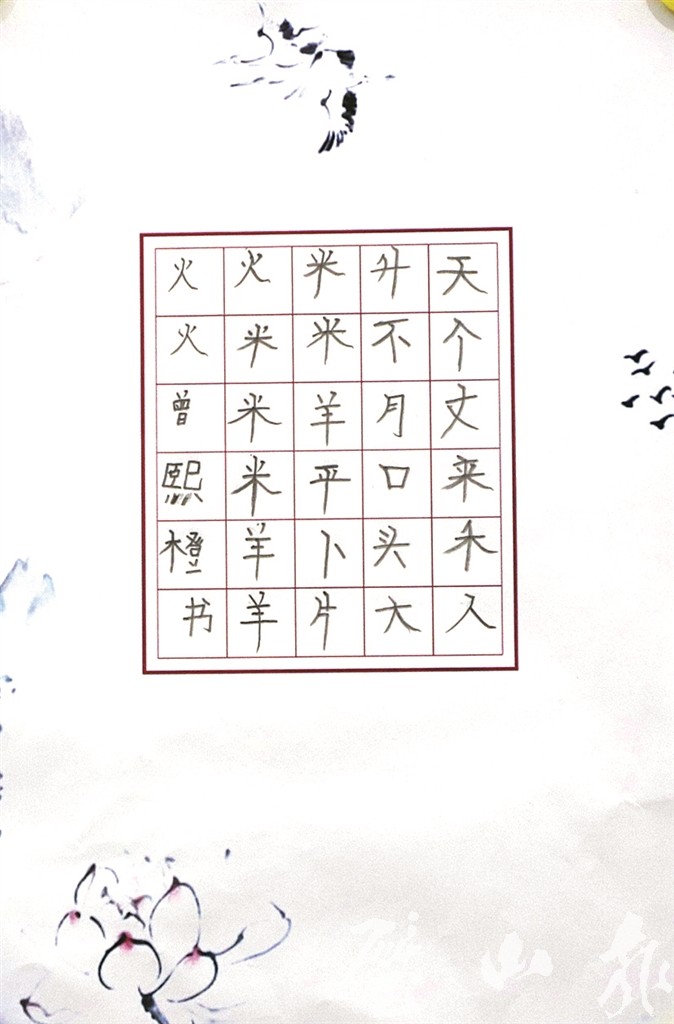 天个丈来禾入
升不月口头大
米米羊平卜片
火米米米羊羊
火火曾熙橙书
山